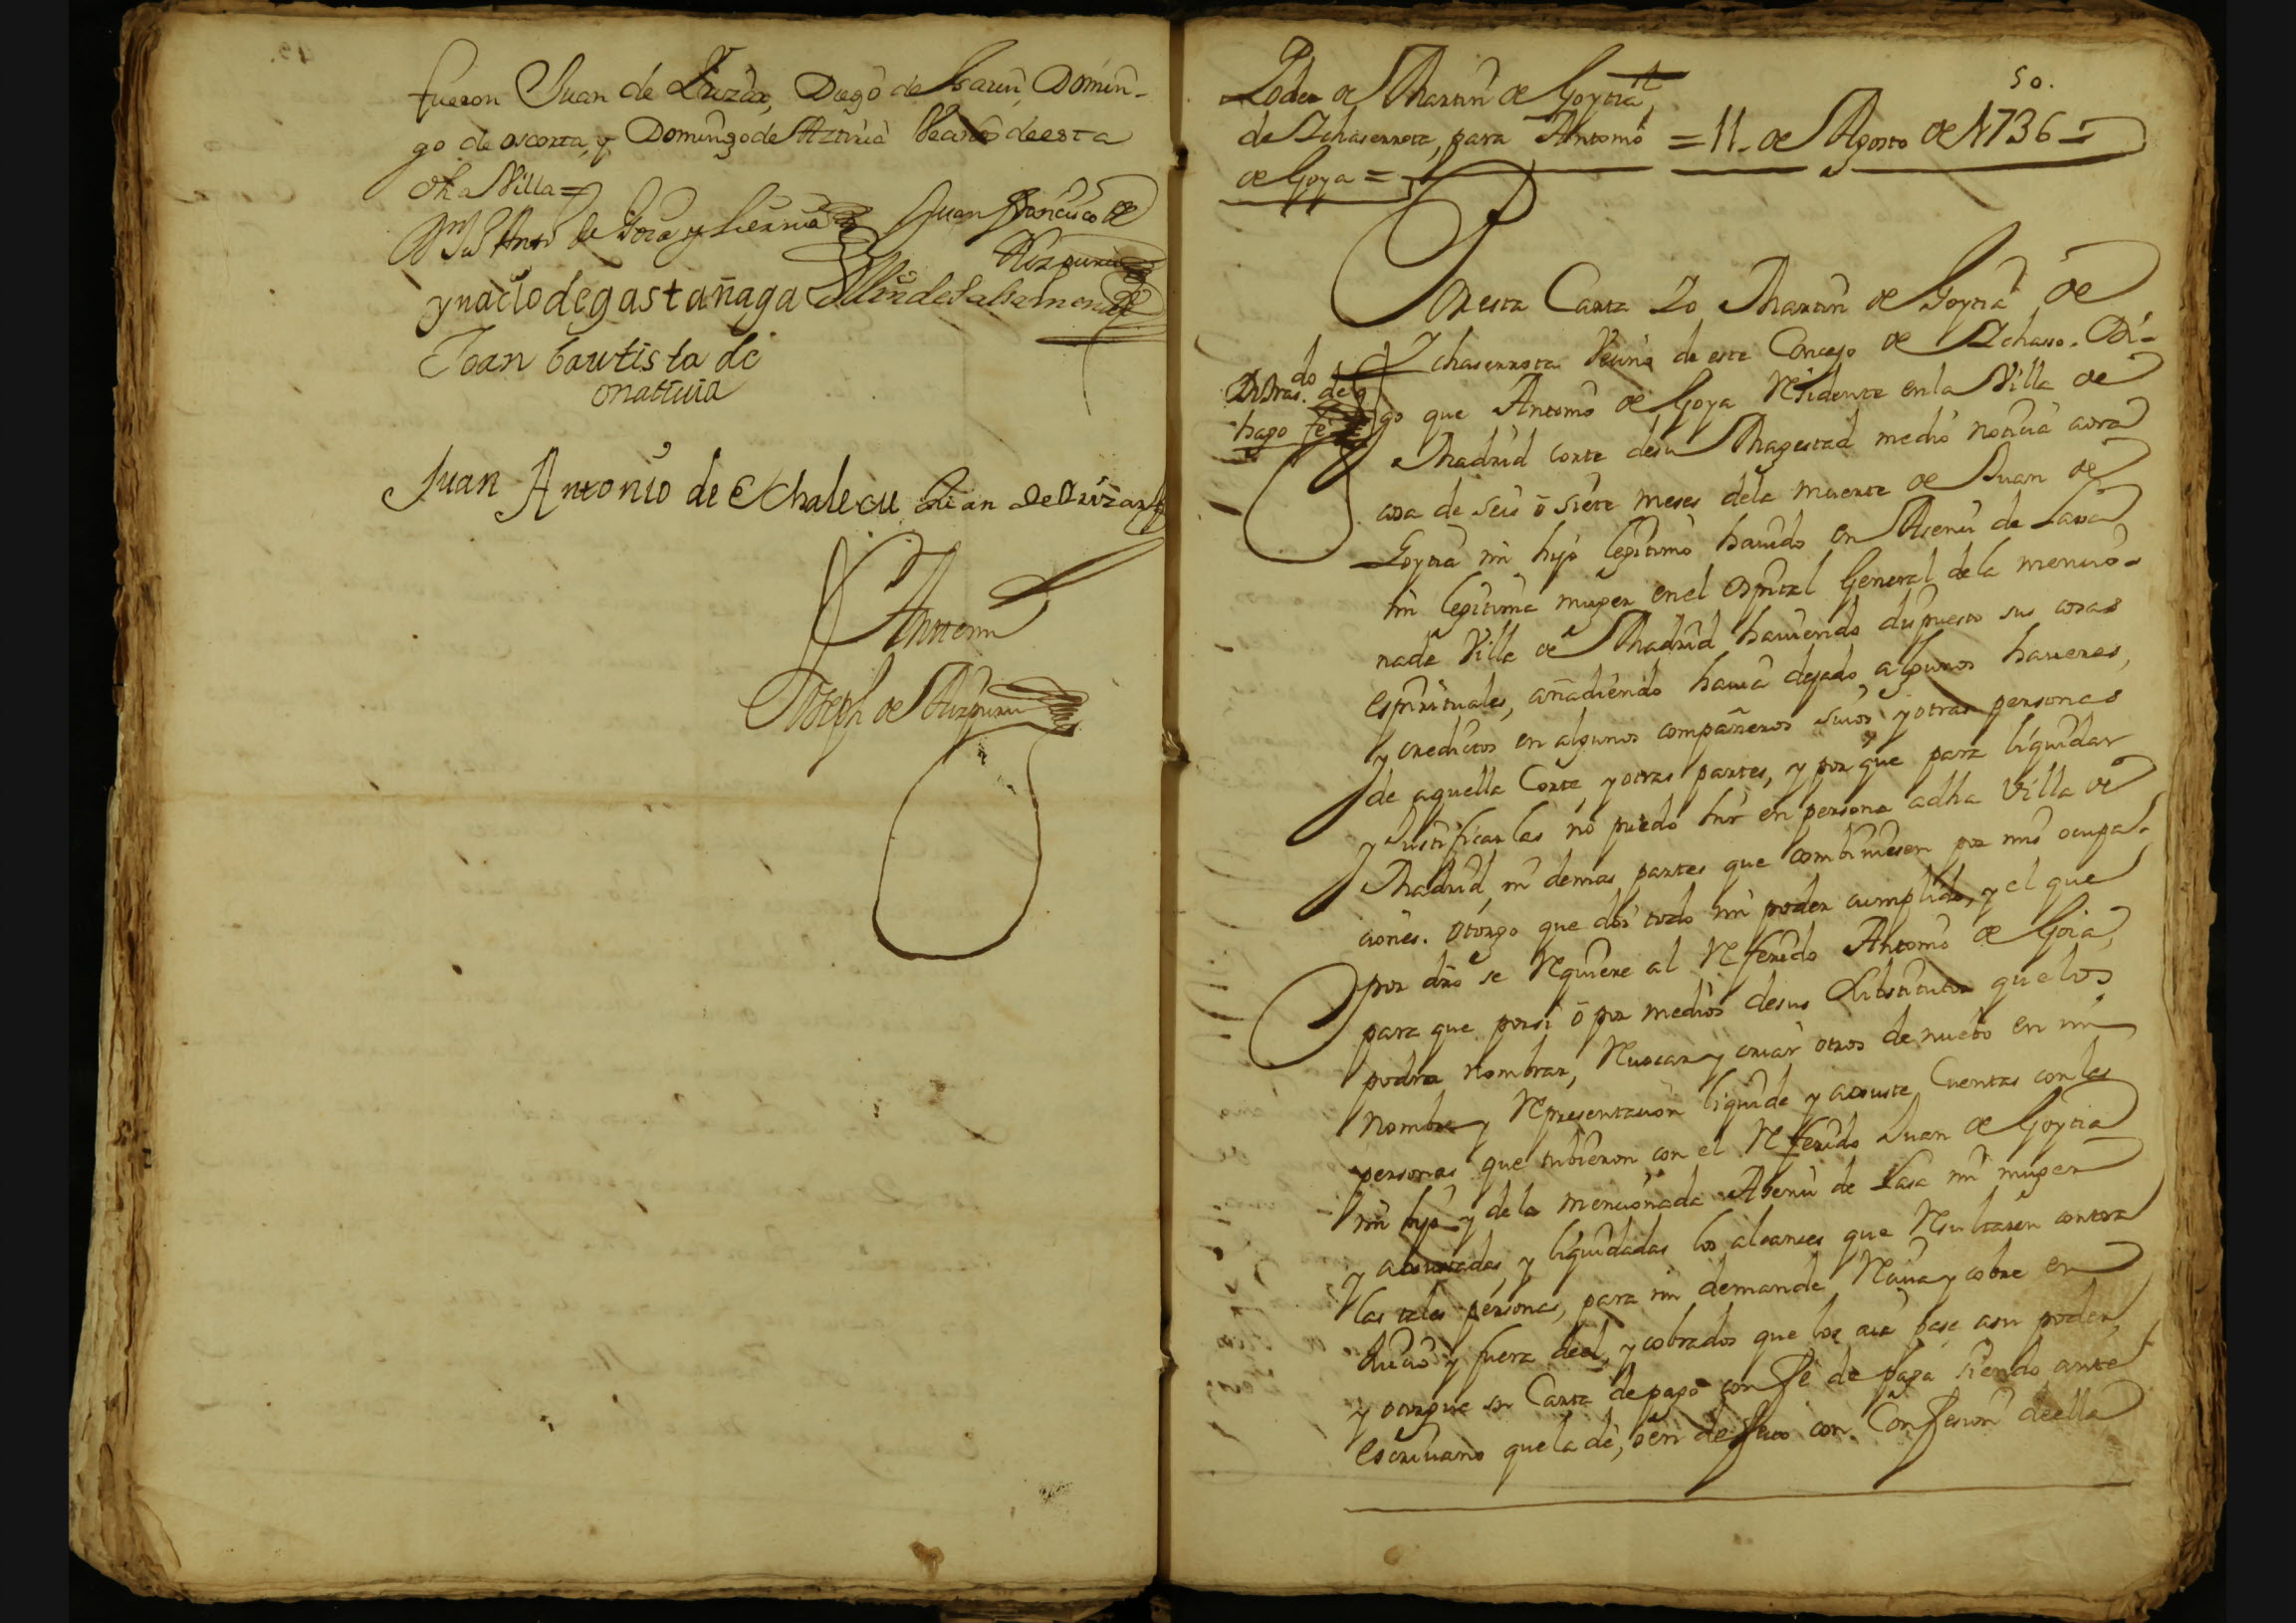 fueron Juan de Lizar, Diego de Isarin, Domin-
go de ascorta, y Domingo de Azttiria Vecinos de esta
dha Villa =
Juan Francisco de
Aizpuru
ynacio de gastañaga
Joan bautista de
onattiuia
Juan Antonio de Echalecu Juan de Lizar
Antemi
Joseph de Aizpuru
50.
Poder de Martin de Goytia
de Ichaserrota, para Antonio = 11. de Agosto de 1736 =
de Goya =
Por esta Carta Yo Martin de Goytia de
Ichaserrota Vecino de este Concejo de Ichasso. Di-
go que Antonio de Goya Residente en la Villa de
Madrid corte de su Magestad me dió noticia aora
cosa de seis ó siete meses de la muerte de Juan de
Goytia mi hijo legitimo hauido en Asencia de Lasa
mi legitima muger en el Ospital General de la mencio-
nada Villa de Madrid hauiendo dispuesto sus cosas
espirituales, añadiendo hauia dejado algunos haueres,
y creditos en algunos compañeros suios y otras personas
de aquella Corte, y otras partes, y por que para liquidar
y Justificarlas no puedo hir en persona adha Villa de
Madrid, ni demas partes que combiniesen por mis ocupa-
ciones. Otorgo que doi todo mi poder cumplido, y el que
por dro se requiere al Referido Antonio de Goia,
para que por si ó por medios de sus substitutos que los
podra nombrar, Reuocar y criar otros de nuebo en mi
Nombre y Representacion liquide y ajuste Cuentas con las
personas que tubieron con el Referido Juan de Goytia
mi hijo y de la mencionada Asencia de Lasa mi muger
y ajustadas y liquidadas los alcances que Resultaren contra
las tales personas, para mi demande Reciua y cobre en
Juicio y fuera de el, y cobrados que los aia pase a su poder,
y otorgue su Carta de pago con fe de paga siendo ante
escriuano que la de, o en defecto con Confesion de ella
do
hago fe